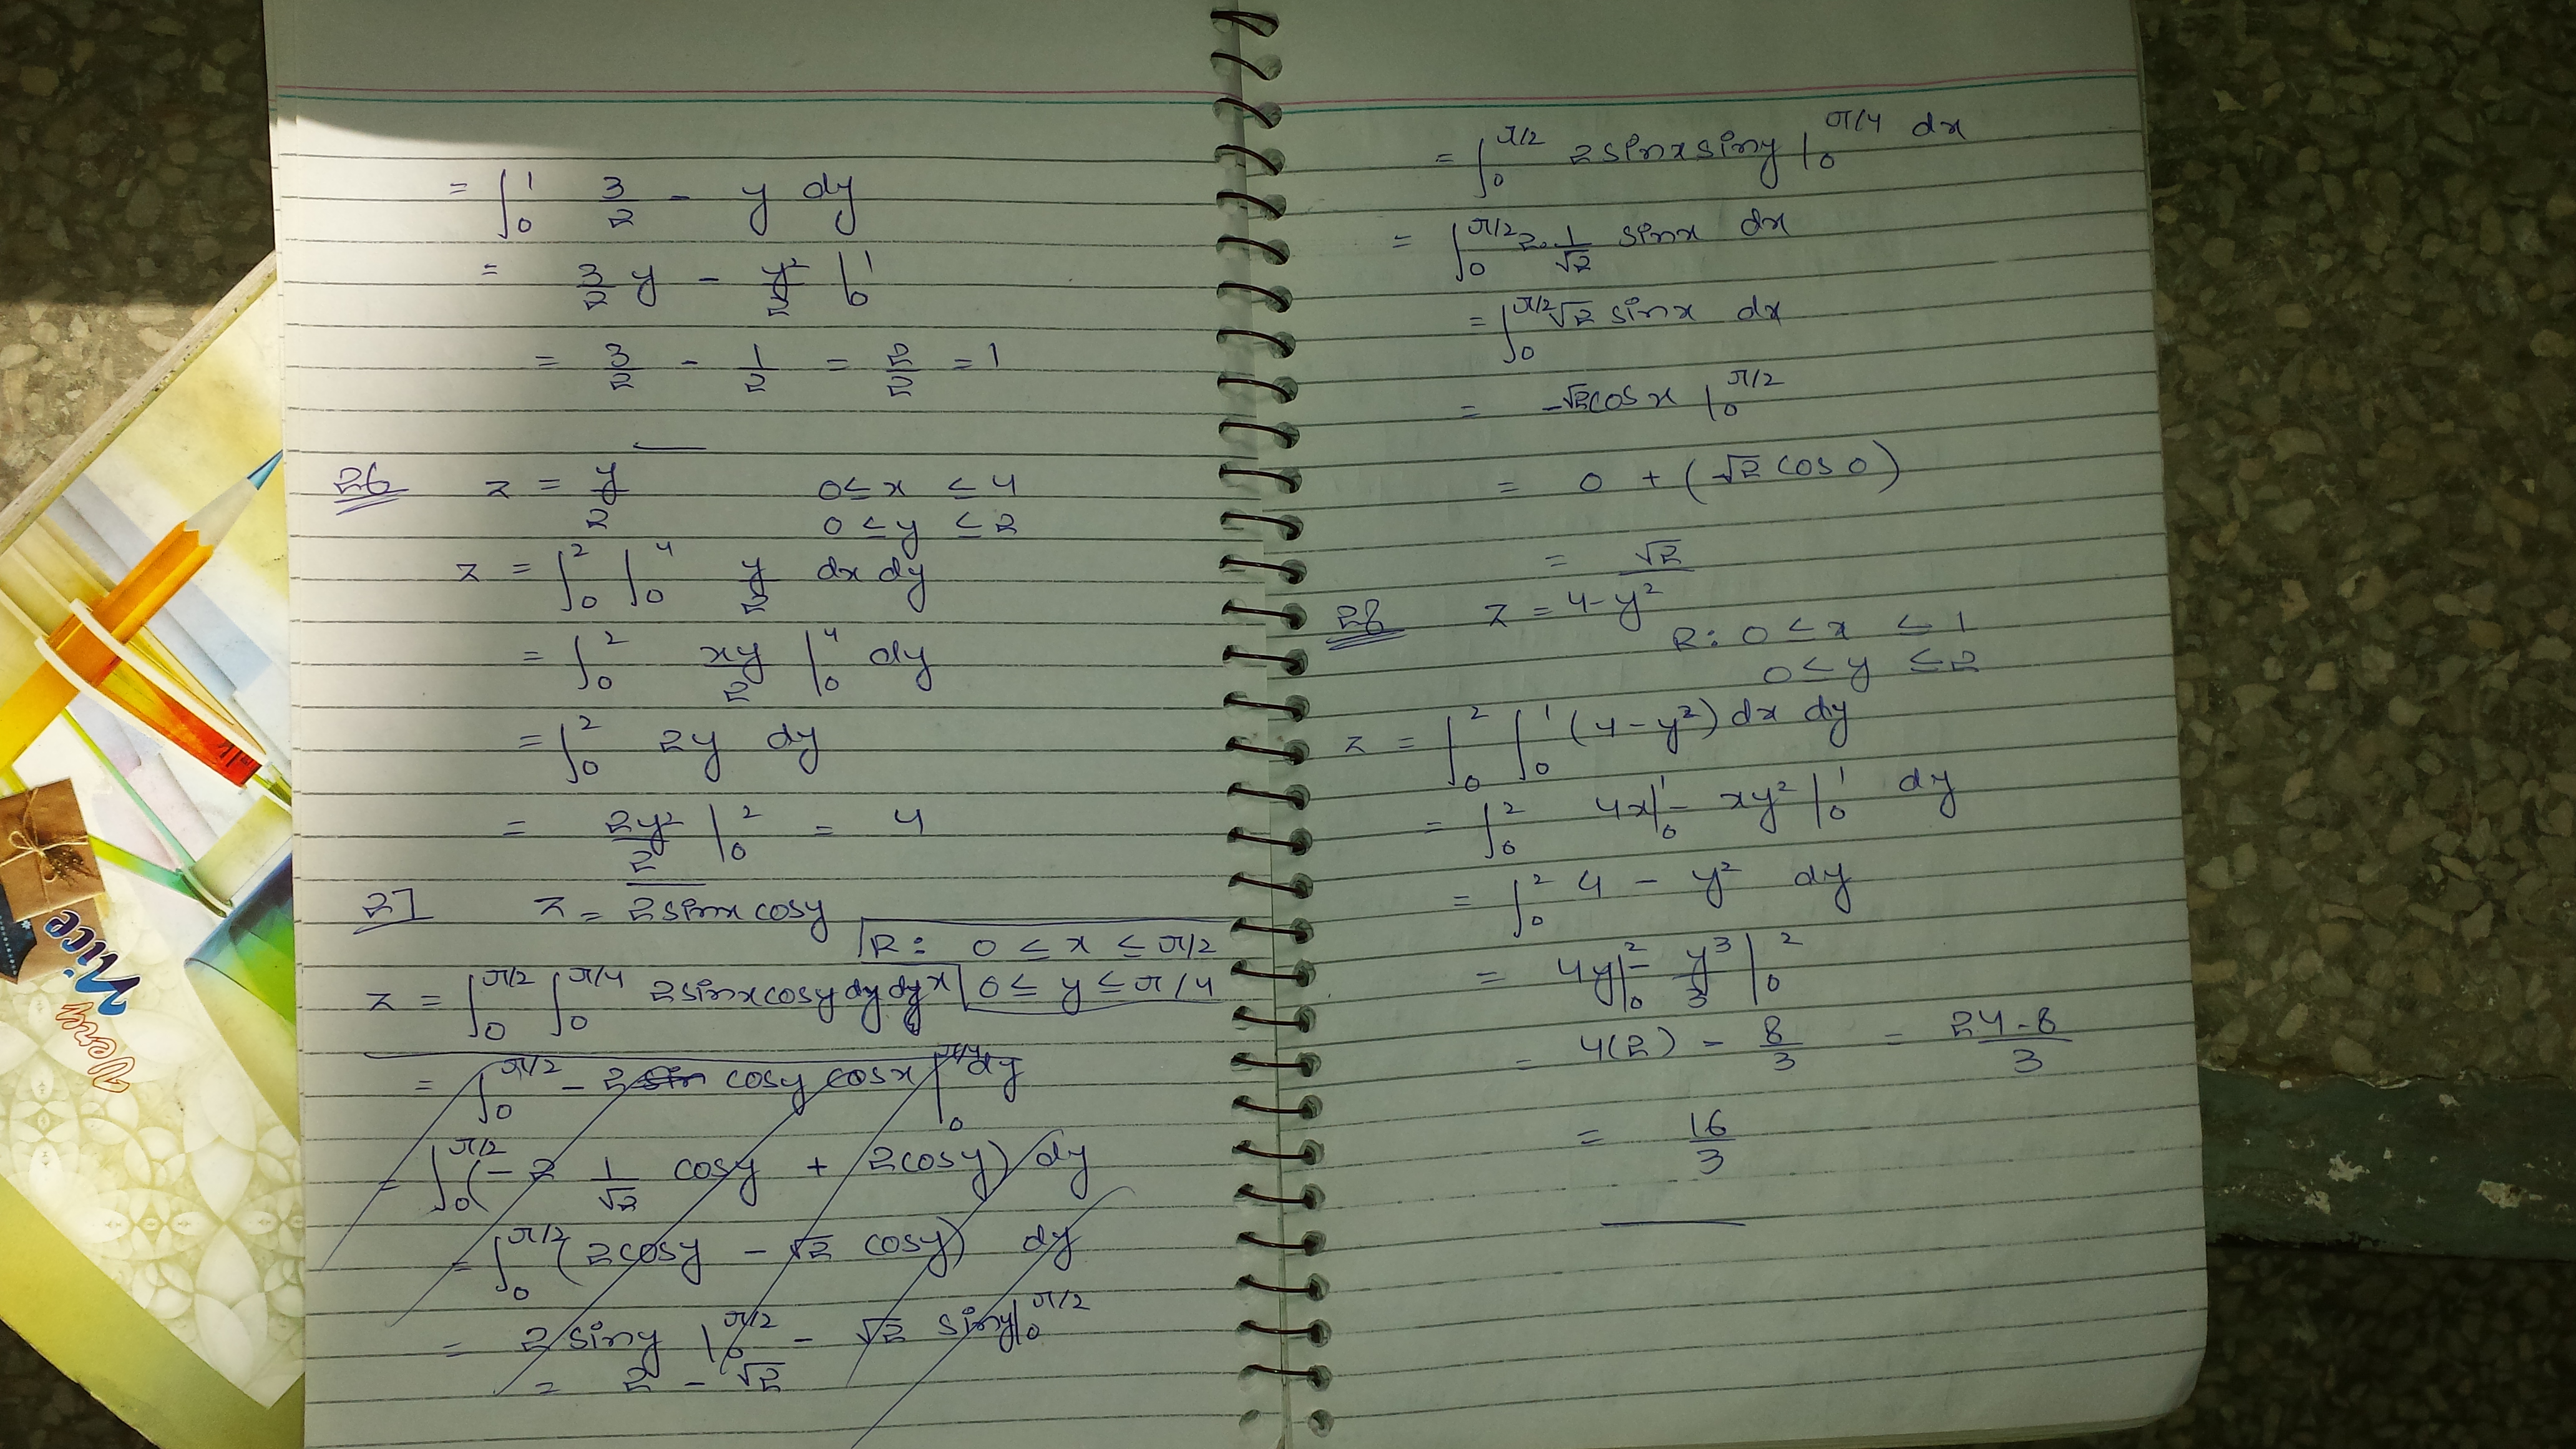 = ∫₀¹ 3/2 - y dy
= 3/2 y - y²/2 |₀¹
= 3/2 - 1/2 = 2/2 = 1
26 z = y/2 0 ≤ x ≤ 4
0 ≤ y ≤ 2
z = ∫₀² ∫₀⁴ y/2 dx dy
= ∫₀² xy/2 |₀⁴ dy
= ∫₀² 2y dy
= 2y²/2 |₀² = 4
27 z = 2sinx cosy
R: 0 ≤ x ≤ π/2
z = ∫₀^π/2 ∫₀^π/4 2sinxcosy dy dx 0 ≤ y ≤ π/4
= ∫₀^π/2 - 2 cosy cosx |₀^π/4 dy
= ∫₀^π/2 (-2 1/√2 cosy + 2cosy) dy
= ∫₀^π/2 (2cosy - √2 cosy) dy
= 2 siny |₀^π/2 - √2 siny |₀^π/2
= 2 - √2
= ∫₀^π/2 2sinxsiny |₀^π/4 dx
= ∫₀^π/2 2·1/√2 sinx dx
= ∫₀^π/2 √2 sinx dx
= -√2cosx |₀^π/2
= 0 + (√2 cos 0)
= √2
28 z = 4-y²
R: 0 ≤ x ≤ 1
0 ≤ y ≤ 2
z = ∫₀² ∫₀¹ (4-y²) dx dy
= ∫₀² 4x|₀¹ - xy² |₀¹ dy
= ∫₀² 4 - y² dy
= 4y|₀² - y³/3 |₀²
= 4(2) - 8/3 = 24-8/3
= 16/3
Very
Nice